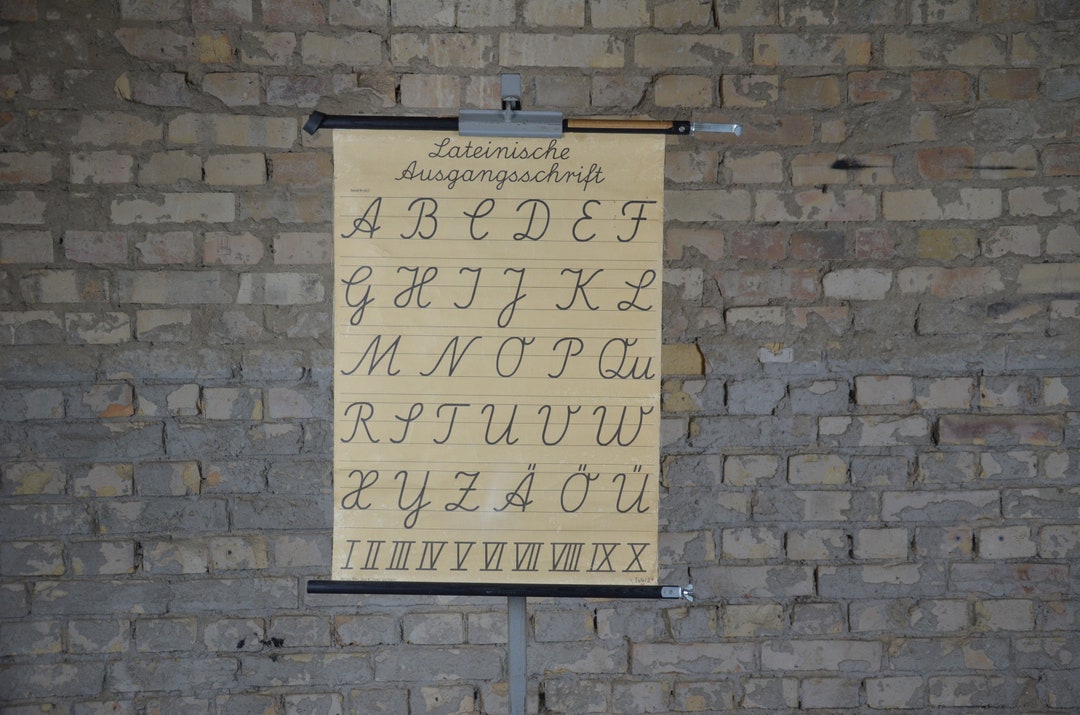 Lateinische
Ausgangsschrift
A B C D E F
G H I J K L
M N O P Qu
R S T U V W
X Y Z Ä Ö Ü
I II III IV V VI VII VIII IX X